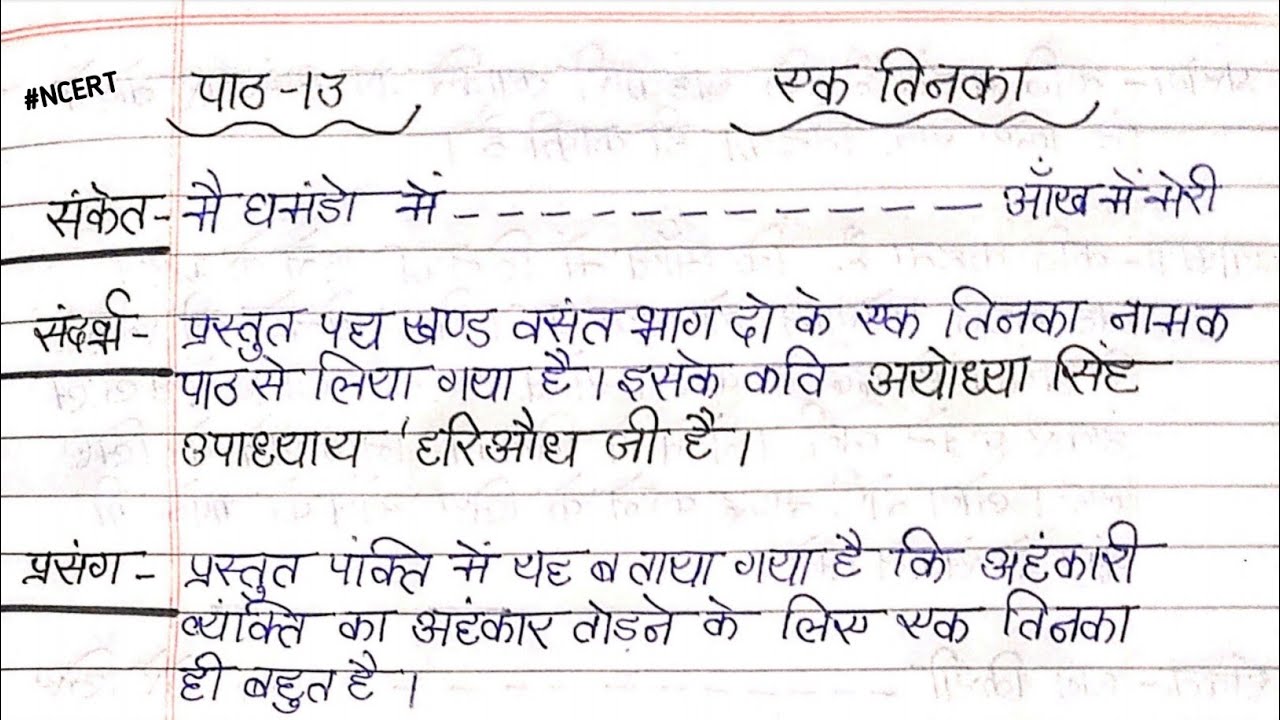 #NCERT पाठ-13 एक तिनका
संकेत- मै घमंडो में ------------- आँख में मेरी
संदर्भ- प्रस्तुत पद्य खण्ड वसंत भाग दो के एक तिनका नामक
पाठ से लिया गया है। इसके कवि अयोध्या सिंह
उपाध्याय 'हरिऔध जी है।
प्रसंग- प्रस्तुत पंक्ति में यह बताया गया है कि अहंकारी
व्यंक्ति का अहंकार तोड़ने के लिए एक तिनका
ही बहुत है।